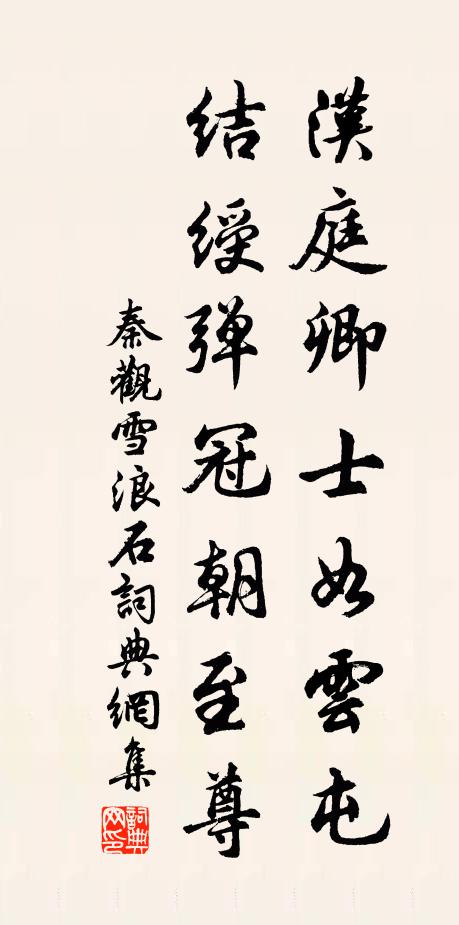 漢庭卿士如雲屯
結綬彈冠朝至尊
秦觀雪浪石詞典網集
詞典網印